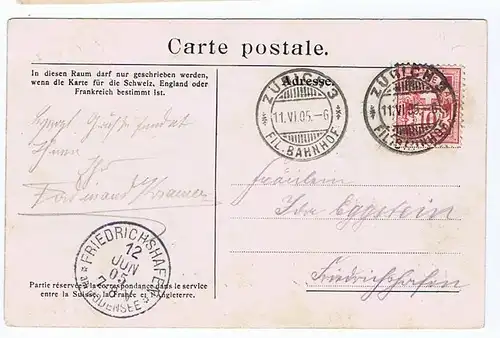 Carte postale.
In diesen Raum darf nur geschrieben werden,
wenn die Karte für die Schweiz, England oder
Frankreich bestimmt ist.
Adresse.
ZÜRICH 3
11.VI.05.–6
FIL. BAHNHOF
ZÜRICH 3
FIL. BAHNHOF
Ihnen
Ihr
Ferdinand Kramer
Fräulein
Ida Eggstein
Friedrichshafen
FRIEDRICHSHAFEN
12
JUN
05
BODENSEE
Partie réservée à la correspondance dans le service
entre la Suisse, la France et l'Angleterre.